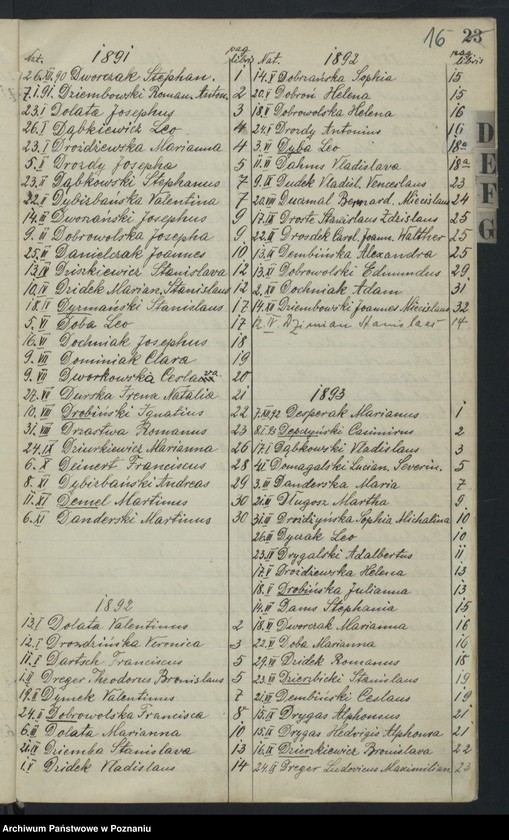 16 23
Nat. 1891 pag. libri
26.XI.90 Dworczak Stephan. 1
7.I.91. Dziembowski Roman. Anton. 2
23.I Dolata Josephus 3
26.I Dąbkiewicz Leo 4
23.I Drożdżewska Marianna 4
5.I Drozdy Josepha 5
23.II Dąbkowski Stephanus 7
22.II Dybizbańska Valentina 7
14.III Dworzański Josephus 9
9.II Dobrowolska Josepha 9
25.VI Danielczak Joannes 10
13.IV Dziszkiewicz Stanislawa 12
10.IV Dzidek Marian. Stanislaus 12
18.IV Dyrmański Stanislaus 17
5.VI Doba Leo 17
16.V Dochniak Josephus 18
9.VII Dominiak Clara 19
9.VII Dworkowska 20
24.VI Durska Irena Natalia 21
10.VIII Drobiński Ignatius 22
31.VIII Drzastwa Romanus 23
24.IX Dziurkiewicz Marianna 26
6.X Deinert Franciscus 28
8.XI Dybizbański Andreas 29
11.XI Demel Martinus 30
6.XI Danderski Martinus 30
1892
13.I Dolata Valentinus 2
12.I Drozdzińska Veronica 3
11.I Dartsch Franciscus 5
1.II Dreger Theodorus Bronislaus 5
19.II Dymek Valentinus 7
24.II Dobrowolska Francisca 8
6.III Dolata Marianna 10
21.IV Dziemba Stanislava 13
1.V Dzidek Vladislaus 14
Nat. 1892 pag. libri
14.V Dobrzańska Sophia 15
20.V Dobroń Helena 15
18.V Dobrowolska Helena 16
24.V Drozdy Antonius 16
3.VI Dyba Leo 18a
11.VI Dahms Vladislava 18a
9.IX Dudek Vladisl. Venceslaus 23
20.VIII Duczmal Bernard. Miecislaus 24
17.IX Droste Stanislaus Zdzislaus 25
22.IX Drosdek Carol. Joann. Walther 25
13.IX Dembińska Alexandra 25
13.XI Dobrowolski Edmundus 29
2.XII Dochniak Adam 31
14.XII Dziembowski Joannes Miecislaus 32
12.IV Dzimian Stanislaus 14
1893
7.XII.92 Desperak Marianus 1
Depczyński Casimirus 2
17.I Dąbkowski Vladislaus 3
Domagalski Lucian. Severin. 5
3.III Danderska Maria 7
21.III Długosz Martha 9
31.III Drożdżyńska Sophia Michalina 10
26.III Dyzak Leo 10
23.IV Drygalski Adalbertus 11
17.V Drożdżewska Helena 13
18.V Drobińska Julianna 13
14.VI Dams Stephania 15
18.VI Dworczak Marianna 16
22.VI Doba Marianna 16
29.VII Dzidek Romanus 18
23.VII Dzierzbicki Stanislaus 19
21.VIII Dembiński Ceslaus 19
15.IX Drygas Alphonsus 21
15.IX Drygas Hedvigis Alphonsa 21
16.IX Dzierzkiewicz Bronislava 22
24.IX Dreger Ludovicus Maximilian 23
D
E
F
G
Archiwum Państwowe w Poznaniu